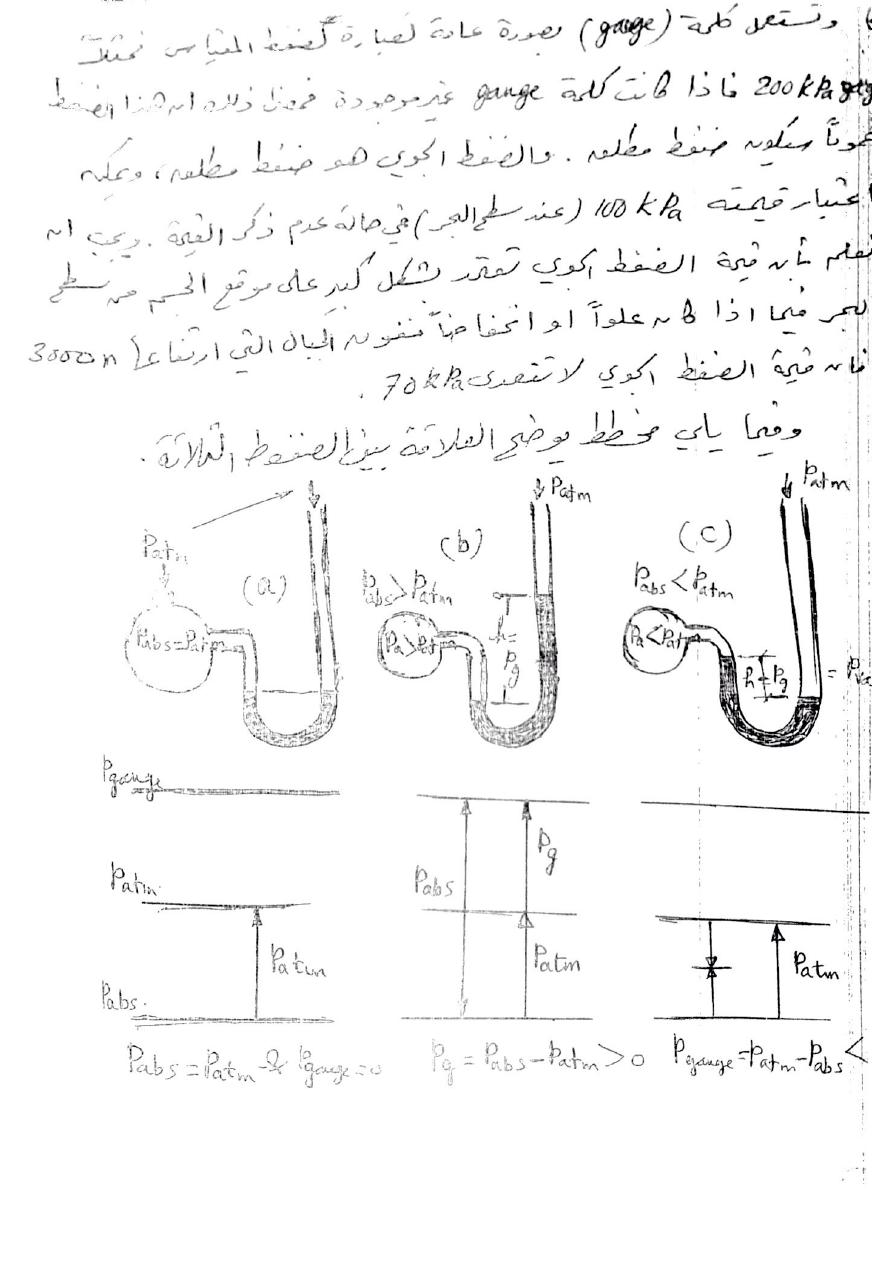 وتستعمل كلمة (gauge) بصورة عامة لعبارة لضغط المقياس فمثلاً
200 kPa gag فاذا كانت كلمة gauge غير موجودة فمعنى ذلك ان هذا الضغط
عموماً سيكون ضغط مطلق . والضغط الجوي هو ضغط مطلق ، ويمكن
اعتبار قيمته 100 kPa (عند سطح البحر) في حالة عدم ذكر القيمة . ويجب ان
نعلم بأن قيمة الضغط الجوي تعتمد بشكل كبير على موقع الجسم من سطح
لبحر فيما اذا كان علواً او انخفاضاً فوق الجبال التي ارتفاعها 3000m
فان قيمة الضغط الجوي لا تتعدى 70 kPa .
وفيما يلي مخطط يوضح العلاقة بين الضغوط الثلاثة .
Patm
(a)
Pabs=Patm
Patm
(b)
Pabs>Patm
Pa>Pat
h=Pg
Patm
(c)
Pabs<Patm
Pa<Pat
h=Pg
Pgauge
Patm
Pabs.
Patm
Pabs
Pg
Patm
Patm
Pabs=Patm & Pgauge=0
Pg=Pabs-Patm>0
Pgauge=Patm-Pabs<